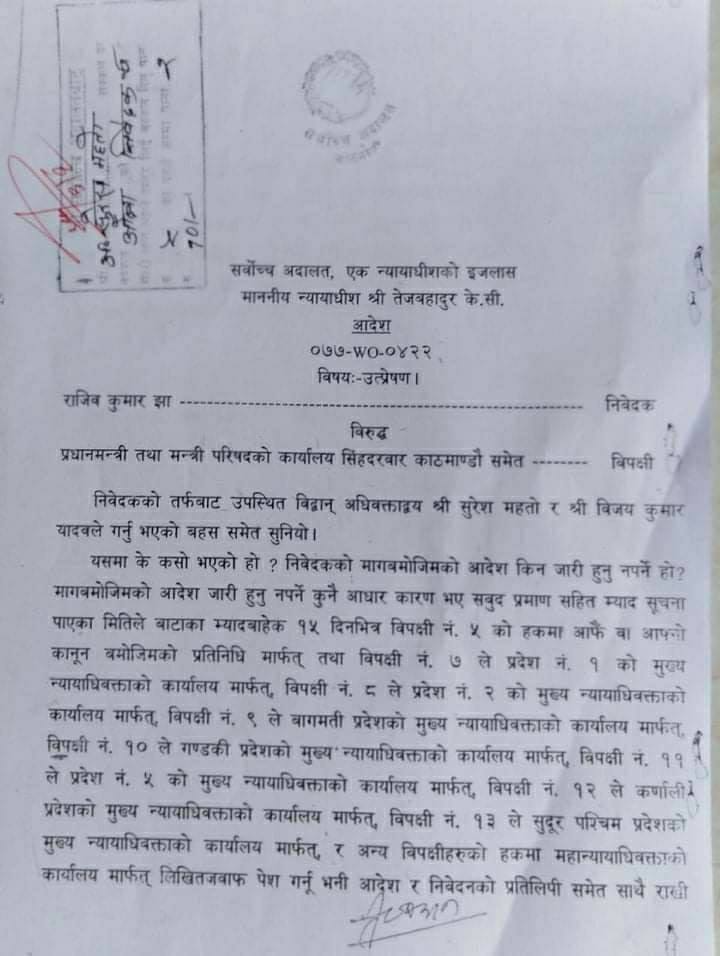 सुरेश महतो
१०।—
सर्वोच्च अदालत
सर्वोच्च अदालत, एक न्यायाधीशको इजलास
माननीय न्यायाधीश श्री तेजबहादुर के.सी.
आदेश
०७७-WO-०४२२
विषयः-उत्प्रेषण।
राजिव कुमार झा ------------------------------------------------------------ निवेदक
विरुद्ध
प्रधानमन्त्री तथा मन्त्री परिषदको कार्यालय सिंहदरबार काठमाण्डौ समेत -------- विपक्षी
निवेदकको तर्फबाट उपस्थित विद्वान् अधिवक्ताद्वय श्री सुरेश महतो र श्री विजय कुमार
यादवले गर्नु भएको बहस समेत सुनियो।
यसमा के कसो भएको हो ? निवेदकको मागबमोजिमको आदेश किन जारी हुनु नपर्ने हो?
मागबमोजिमको आदेश जारी हुनु नपर्ने कुनै आधार कारण भए सवुद प्रमाण सहित म्याद सूचना
पाएका मितिले बाटाका म्यादबाहेक १५ दिनभित्र विपक्षी नं. ५ को हकमा आफैं वा आफ्नो
कानून बमोजिमको प्रतिनिधि मार्फत् तथा विपक्षी नं. ७ ले प्रदेश नं. १ को मुख्य
न्यायाधिवक्ताको कार्यालय मार्फत्, विपक्षी नं. ८ ले प्रदेश नं. २ को मुख्य न्यायाधिवक्ताको
कार्यालय मार्फत्, विपक्षी नं. ९ ले बागमती प्रदेशको मुख्य न्यायाधिवक्ताको कार्यालय मार्फत्,
विपक्षी नं. १० ले गण्डकी प्रदेशको मुख्य न्यायाधिवक्ताको कार्यालय मार्फत्, विपक्षी नं. ११
ले प्रदेश नं. ५ को मुख्य न्यायाधिवक्ताको कार्यालय मार्फत्, विपक्षी नं. १२ ले कर्णाली
प्रदेशको मुख्य न्यायाधिवक्ताको कार्यालय मार्फत्, विपक्षी नं. १३ ले सुदूर पश्चिम प्रदेशको
मुख्य न्यायाधिवक्ताको कार्यालय मार्फत्, र अन्य विपक्षीहरुको हकमा महान्यायाधिवक्ताको
कार्यालय मार्फत् लिखितजवाफ पेश गर्नू भनी आदेश र निवेदनको प्रतिलिपी समेत साथै राखी